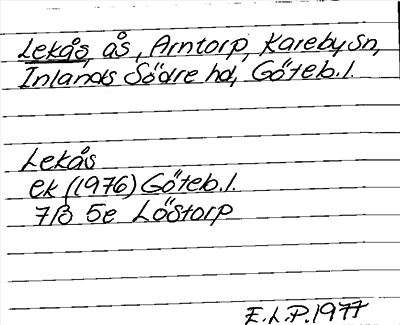 Lekås, ås, Arntorp, Kareby sn,
Inlands Södre hd, Göteb. l.
Lekås
ek (1976) Göteb. l.
7B 5e Löstorp
E.L.P. 1977